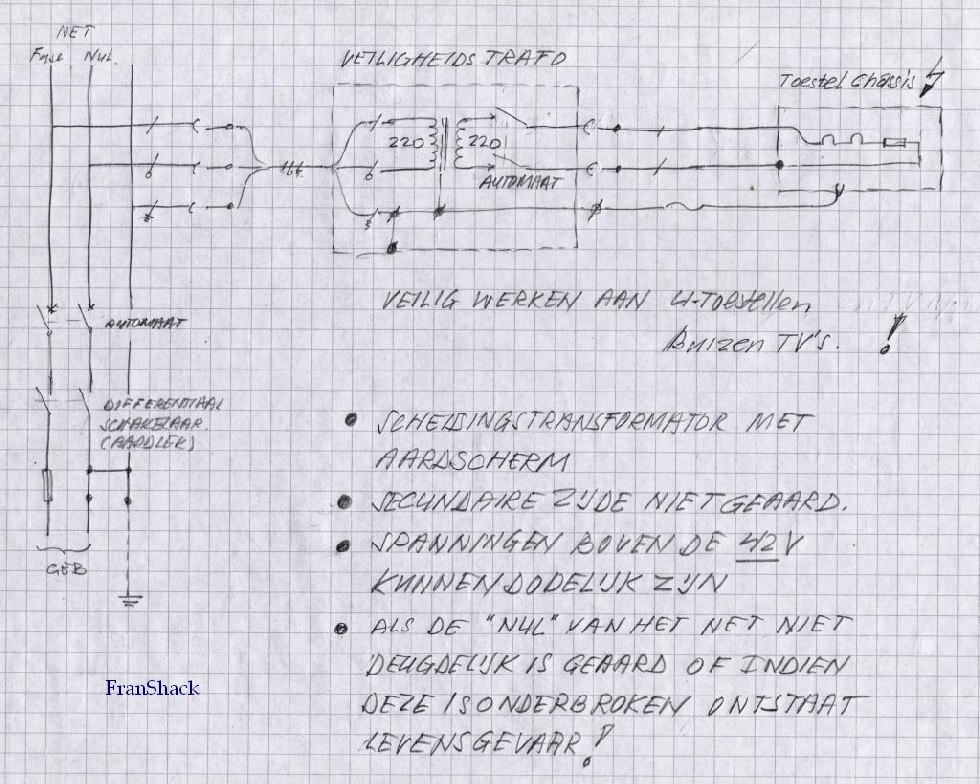 NET
Fuse Nul.
VEILIGHEIDS TRAFO
Toestel Chassis
220
220
AUTOMAAT
VEILIG WERKEN AAN U-Toestellen
Buizen TV's. !
AUTOMAAT
DIFFERENTIAAL
SCHAKELAAR.
(AARDLEK)
GEB
• SCHEIDINGSTRANSFORMATOR MET
AARDSCHERM
• SECUNDAIRE ZIJDE NIET GEAARD.
• SPANNINGEN BOVEN DE 42V
KUNNEN DODELIJK ZIJN
• ALS DE "NUL" VAN HET NET NIET
DEUGDELIJK IS GEAARD OF INDIEN
DEZE IS ONDERBROKEN ONTSTAAT
LEVENSGEVAAR!
FranShack